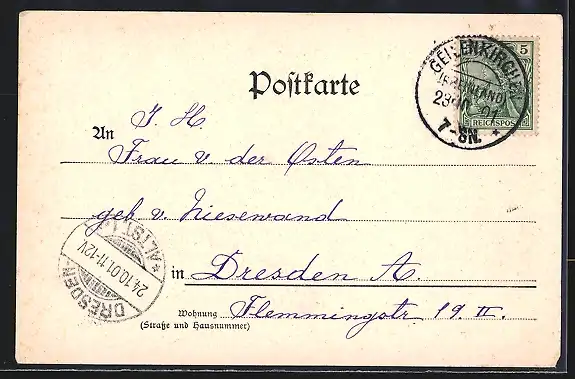 Postkarte
5
REICHSPOST
GEILENKIRCHEN
(RHEINLAND)
23.10.01
7-8N.
I. H.
An
Frau v. der Osten
geb v. Niesewand
DRESDEN-ALTST.
24.10.01.11-12V
in Dresden A.
Wohnung
(Straße und Hausnummer)
Flemmingstr 19. II.